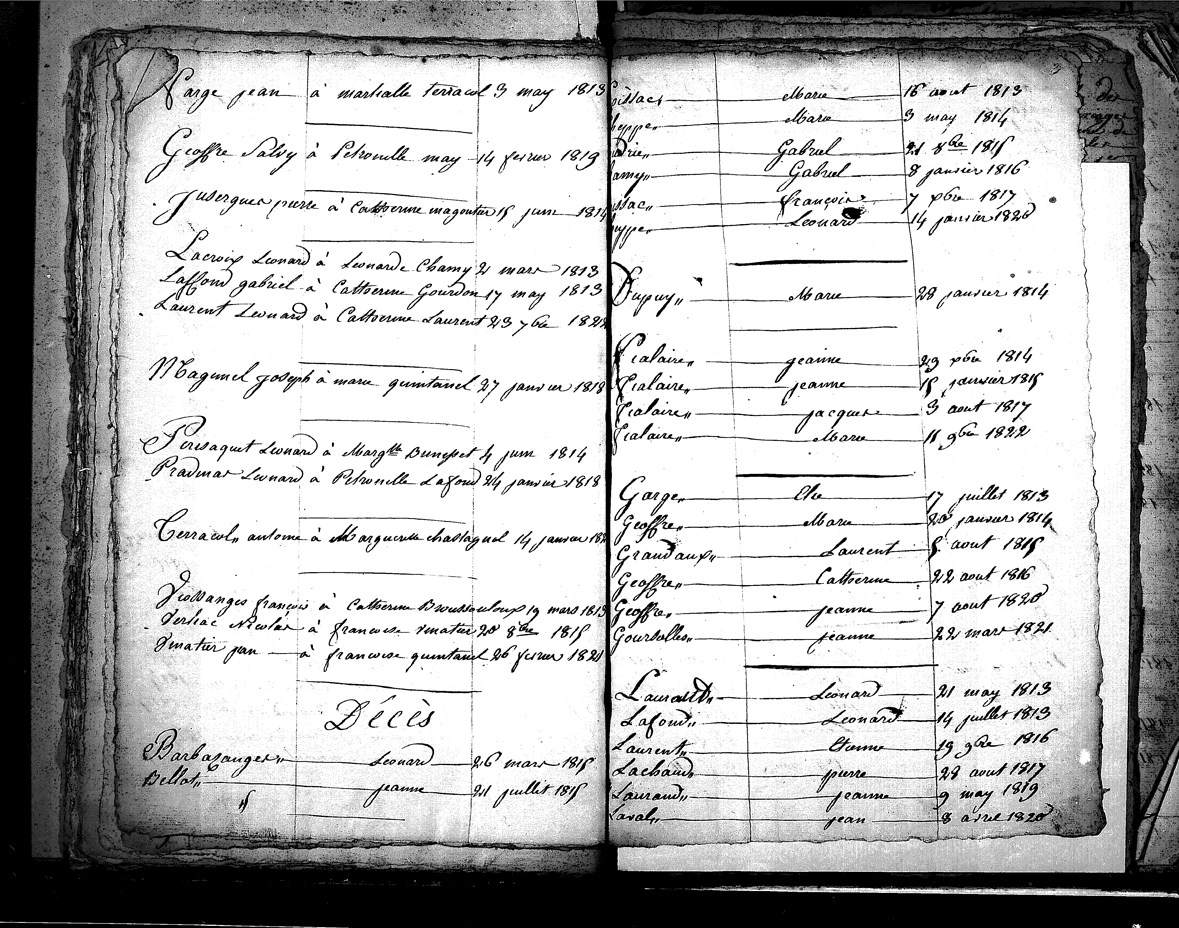 Farge jean à martialle terracol 3 may 1813
Geoffre Salvy à Petronille may 14 fevrier 1819
Jusergues pierre à Catherine magontier 15 juin 1814
Lacroix Leonard à Leonarde Chamy 2 mars 1813
Laffond gabriel à Catherine Gourdon 17 may 1813
Laurent Leonard à Catherine Laurent 23 7bre
Magimel joseph à marie quintanel 27 janvier 1818
Leonard à Margtte 4 juin 1814
Pradinas Leonard à Petronille Lafond 24 janvier 1818
Terracol antoine à Marguerite chastagnol 14 janvier
françois à Catherine 19 mars 1813
Nicolas à francoise vmatier 20 8bre 1815
vmatier jean à francoise quintanel 26 fevrier 1821
Décès
Barbazanges Leonard 26 mars 1815
Bellot jeanne 21 juillet 1815
Marie 16 aout 1813
Marie 3 may 1814
Gabriel 21 8bre 1815
Gabriel 8 janvier 1816
françois 7 xbre 1817
Leonard 14 janvier 1820
Dupuy Marie 28 janvier 1814
Fialaire jeanne 29 xbre 1814
Fialaire jeanne 15 janvier 1815
Fialaire jacques 3 aout 1817
Fialaire Marie 11 9bre 1822
Garge Elie 17 juillet 1813
Geoffre Marie 20 janvier 1814
Grandaux Laurent 5 aout 1815
Geoffre Catherine 22 aout 1816
Geoffre jeanne 7 aout 1820
Goursolles jeanne 22 mars 1821
Leonard 21 may 1813
Lafond Leonard 14 juillet 1813
Laurent Etienne 19 9bre 1816
Lachaud pierre 28 aout 1817
Laurand jeanne 9 may 1819
Laval jean 8 avril 1820